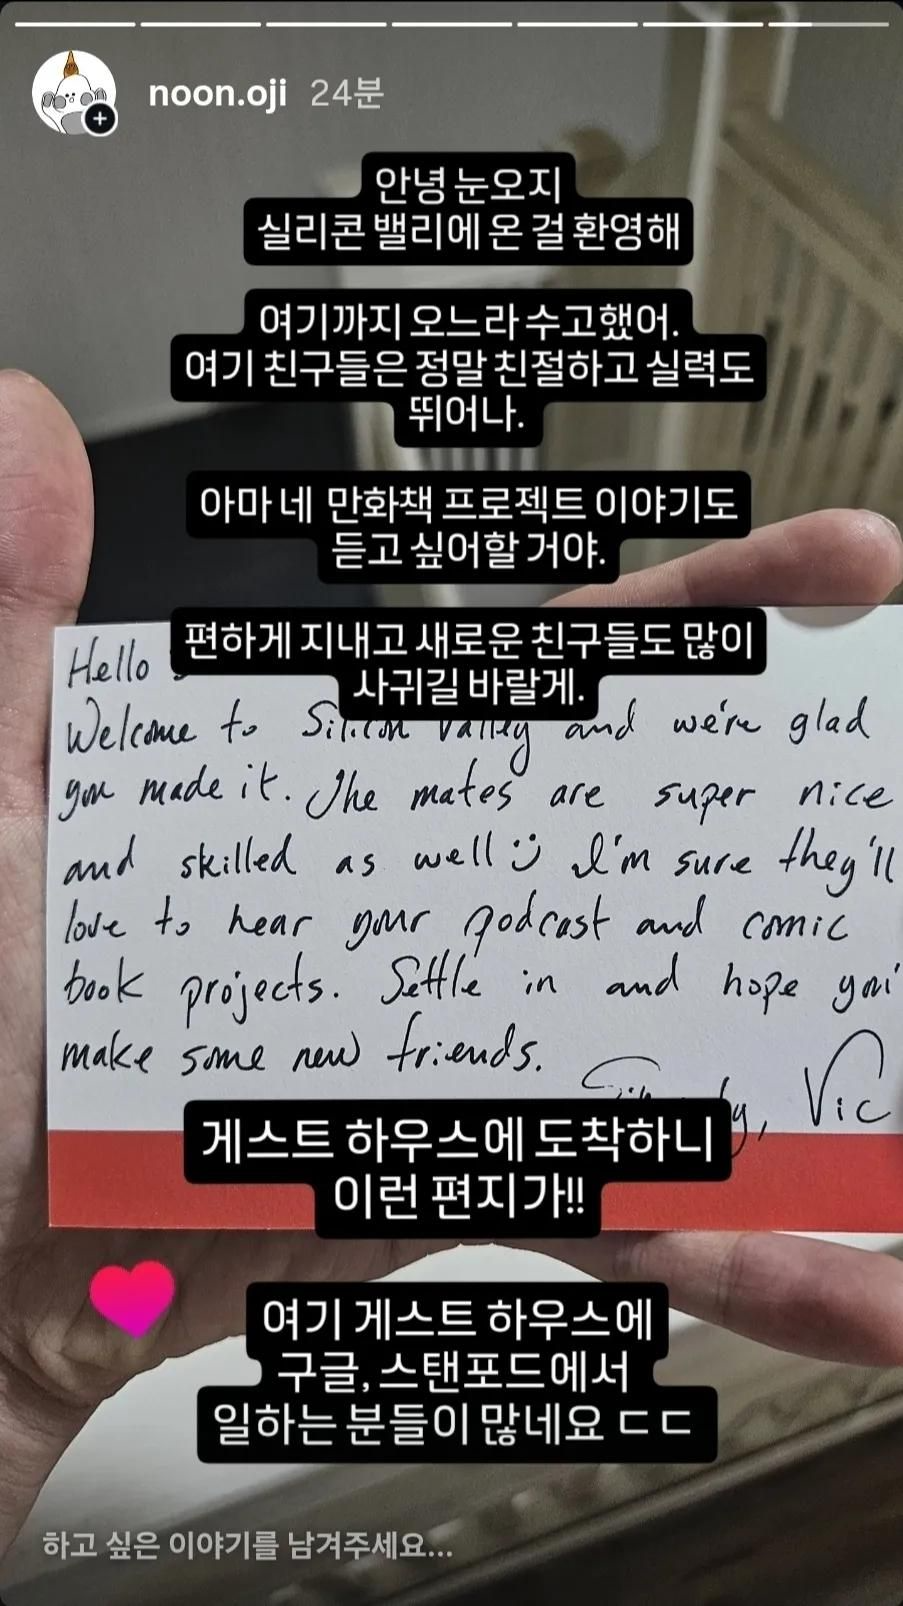 noon.oji 24분
안녕 눈오지
실리콘 밸리에 온 걸 환영해
여기까지 오느라 수고했어.
여기 친구들은 정말 친절하고 실력도
뛰어나.
아마 네 만화책 프로젝트 이야기도
듣고 싶어할 거야.
편하게 지내고 새로운 친구들도 많이
사귀길 바랄게.
Hello
Welcome to Silicon Valley and we're glad
you made it. The mates are super nice
and skilled as well :) I'm sure they'll
love to hear your podcast and comic
book projects. Settle in and hope you
make some new friends.
Vic
게스트 하우스에 도착하니
이런 편지가!!
여기 게스트 하우스에
구글, 스탠포드에서
일하는 분들이 많네요 ㄷㄷ
하고 싶은 이야기를 남겨주세요...